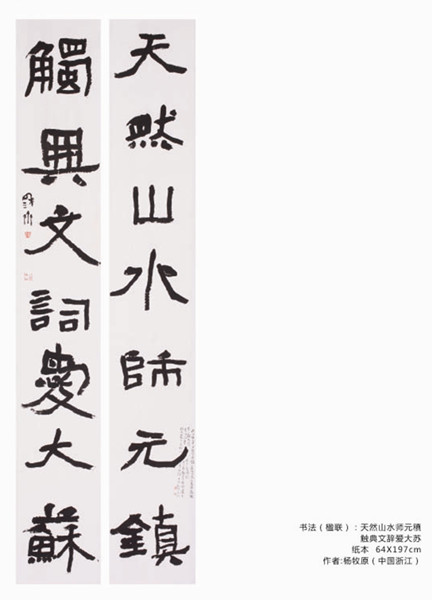 天然山水師元鎮
觸興文詞愛大蘇
书法（楹联）：天然山水师元
触典文辞爱大苏
纸本 64X197cm
作者:杨牧原（中国浙江）